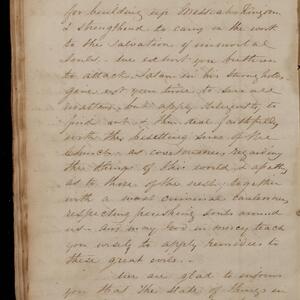 for building up Messiahs Kingdom
& strengthened to carry on the work
to the salvation of immortal
souls. We exhort you brethren
to attack Satan in his strong holds
gave not your time to
matters, but apply diligently to
find out & then deal faithfully
with the besetting sins of the
Church. as covetousness, regarding
the things of this world & apathy
as to those of the next, together
with a most criminal
respecting perishing souls around
us. And may God in mercy teach
you wisely to apply remedies to
these great evils.
We are glad to inform
you that the state of things in